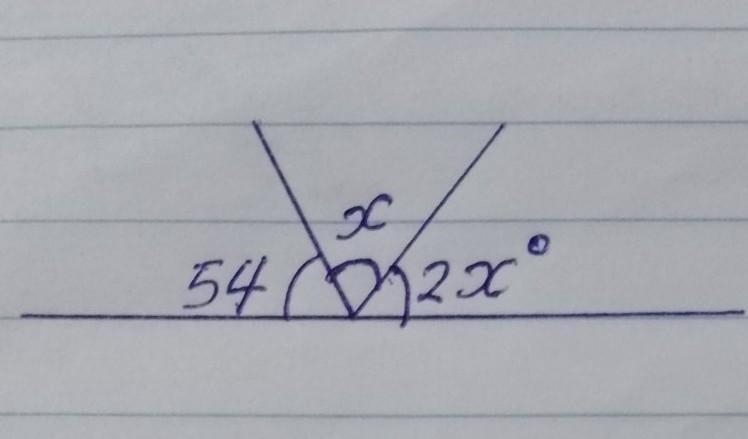 x
54 2x°